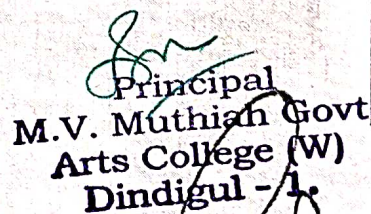 Principal
M.V. Muthiah Govt
Arts College (W)
Dindigul - 1.